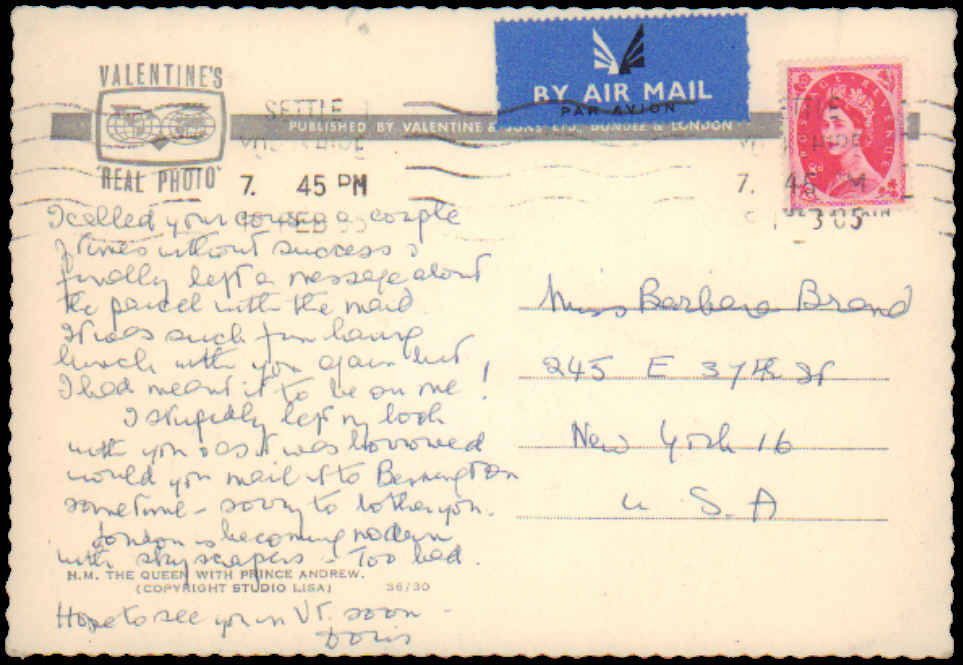 VALENTINE'S
"REAL PHOTO"
BY AIR MAIL
PAR AVION
PUBLISHED BY VALENTINE & SONS LTD., DUNDEE & LONDON
POSTAGE REVENUE
SETTLE
7. 45 PM
FEB
7. 45 PM
I called your a couple
of times without success &
finally left a message about
the parcel with the maid.
It was such fun having
lunch with you again but
I had meant it to be on me!
I stupidly left my book
with you & as it was borrowed
would you mail it to Bennington
sometime - sorry to bother you.
London is becoming modern
with skyscrapers - Too bad.
H.M. THE QUEEN WITH PRINCE ANDREW.
(COPYRIGHT STUDIO LISA) 36/30
Hope to see you in VT. soon -
Doris
Miss Barbara Brand
245 E 37th St
New York 16
U.S.A